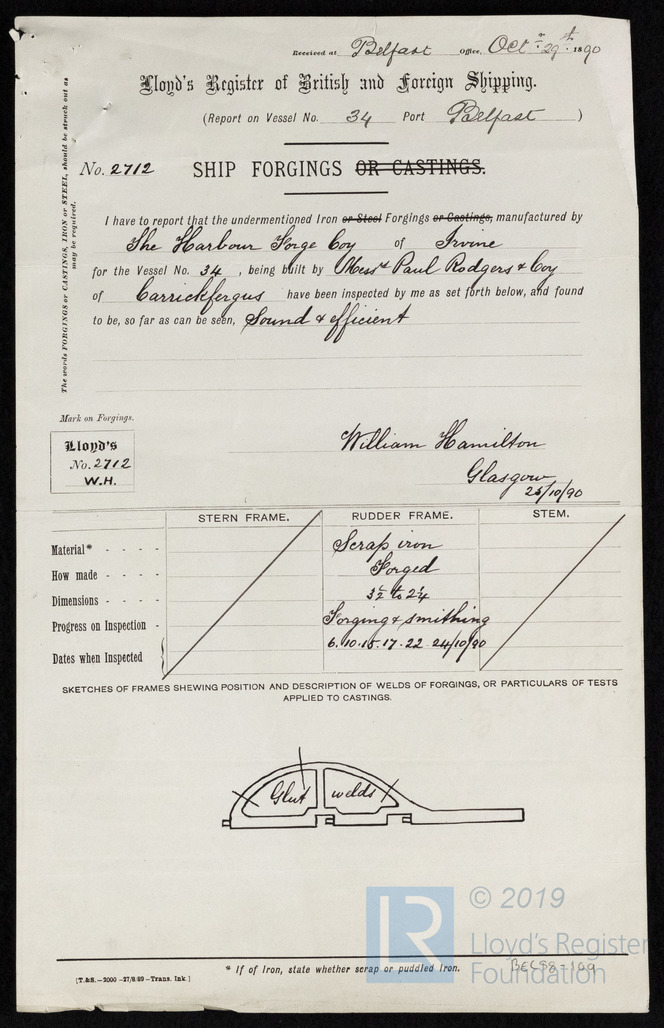 Received at Belfast Office, Oct.r 29th 1890
Lloyd's Register of British and Foreign Shipping.
(Report on Vessel No. 34 Port Belfast )
No. 2712 SHIP FORGINGS OR CASTINGS.
The words FORGINGS or CASTINGS, IRON or STEEL, should be struck out as
may be required.
I have to report that the undermentioned Iron or Steel Forgings or Castings, manufactured by
The Harbour Forge Coy of Irvine
for the Vessel No. 34 , being built by Messrs Paul Rodgers & Coy
of Carrickfergus have been inspected by me as set forth below, and found
to be, so far as can be seen, Sound & efficient
Mark on Forgings.
Lloyd's
No. 2712
W.H.
William Hamilton
Glasgow
/10/90
STERN FRAME. RUDDER FRAME. STEM.
Material* - - - - Scrap iron
How made - - - - Forged
Dimensions - - - - 3½ to 2¼
Progress on Inspection - Forging & smithing
Dates when Inspected 6.10.15.17.22.24/10/90
SKETCHES OF FRAMES SHEWING POSITION AND DESCRIPTION OF WELDS OF FORGINGS, OR PARTICULARS OF TESTS
APPLIED TO CASTINGS.
Glut welds
LR © 2019
Lloyd's Register
Foundation
* If of Iron, state whether scrap or puddled Iron.
BEC98-109
[T.&S.-2000-27/8/89-Trans. Ink.]